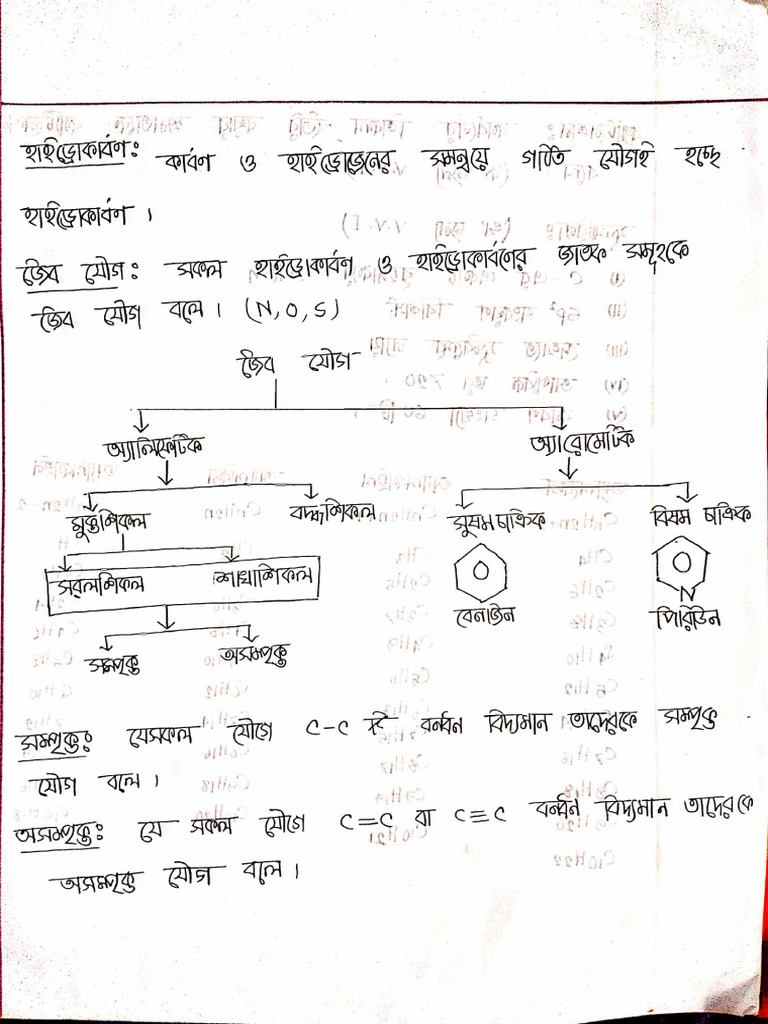 হাইড্রোকার্বণঃ কার্বণ ও হাইড্রোজেনের সমন্বয়ে গঠিত যৌগই হচ্ছে
হাইড্রোকার্বণ ।
জৈব যৌগ: সকল হাইড্রোকার্বণ ও হাইড্রোকার্বণের জাতক সমূহকে
জৈব যৌগ বলে । (N, O, S)
জৈব যৌগ
অ্যালিফেটিক অ্যারোমেটিক
মুক্তশিকল বদ্ধশিকল সুষম চাক্রিক বিষম চাক্রিক
সরলশিকল শাখাশিকল
N
বেনজিন পিরিডিন
সম্পৃক্ত অসম্পৃক্ত
সম্পৃক্তঃ যেসকল যৌগে C-C বন্ধন বিদ্যমান তাদেরকে সম্পৃক্ত
যৌগ বলে ।
অসম্পৃক্তঃ যে সকল যৌগে C=C বা C≡C বন্ধন বিদ্যমান তাদেরকে
অসম্পৃক্ত যৌগ বলে ।